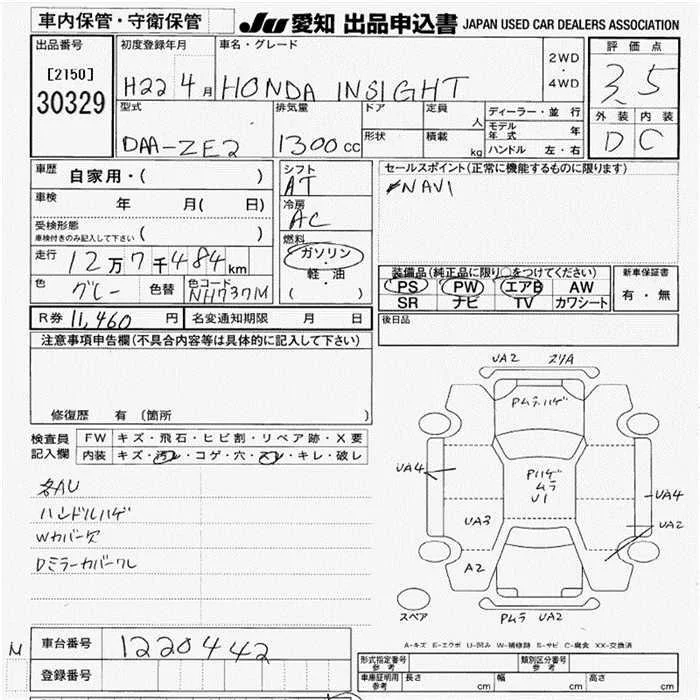 車内保管・守衛保管
JU 愛知 出品申込書 JAPAN USED CAR DEALERS ASSOCIATION
出品番号
[2150]
30329
初度登録年月
H22 4月
車名・グレード
HONDA INSIGHT
2WD
・
4WD
評価点
3.5
外装 内装
D C
型式
DAA-ZE2
排気量
1300cc
ドア
定員
人
形状
積載
kg
ディーラー・並行
モデル年式 年
ハンドル 左・右
車歴
自家用・( )
車検
年 月( 日)
受検形態
車検付きのみ記入して下さい ( )
走行
12万7千484km
色
グレー
色替
色コード
NH737M
シフト
AT
冷房
AC
燃料
ガソリン
・
軽・油
( )
セールスポイント(正常に機能するものに限ります)
NAVI
装備品(純正品に限り○をつけてください)
PS PW エアB AW
SR ナビ TV カワシート
新車保証書
有・無
R券 11,460 円
名変通知期限 月 日
後日品
注意事項申告欄(不具合内容等は具体的に記入して下さい)
修復歴 有(箇所 )
検査員
記入欄
FW キズ・飛石・ヒビ割・リペア跡・X要
内装 キズ・汚レ・コゲ・穴・スレ・キレ・破レ
各AU
ハンドルハゲ
Wカバー欠
Dミラーカバーワレ
UA2 スリA
Pムラ・ハゲ
UA4
Pハゲ
ムラ
U1
UA4
UA3
UA2
A2
スペア
Pムラ UA2
A-キズ E-エクボ U-凹み W-補修跡 S-サビ C-腐食 XX-交換済
M
車台番号
1220442
登録番号
形式指定番号
参考
類別区分番号
参考
車庫証明用
参考
長さ cm
幅 cm
高さ cm